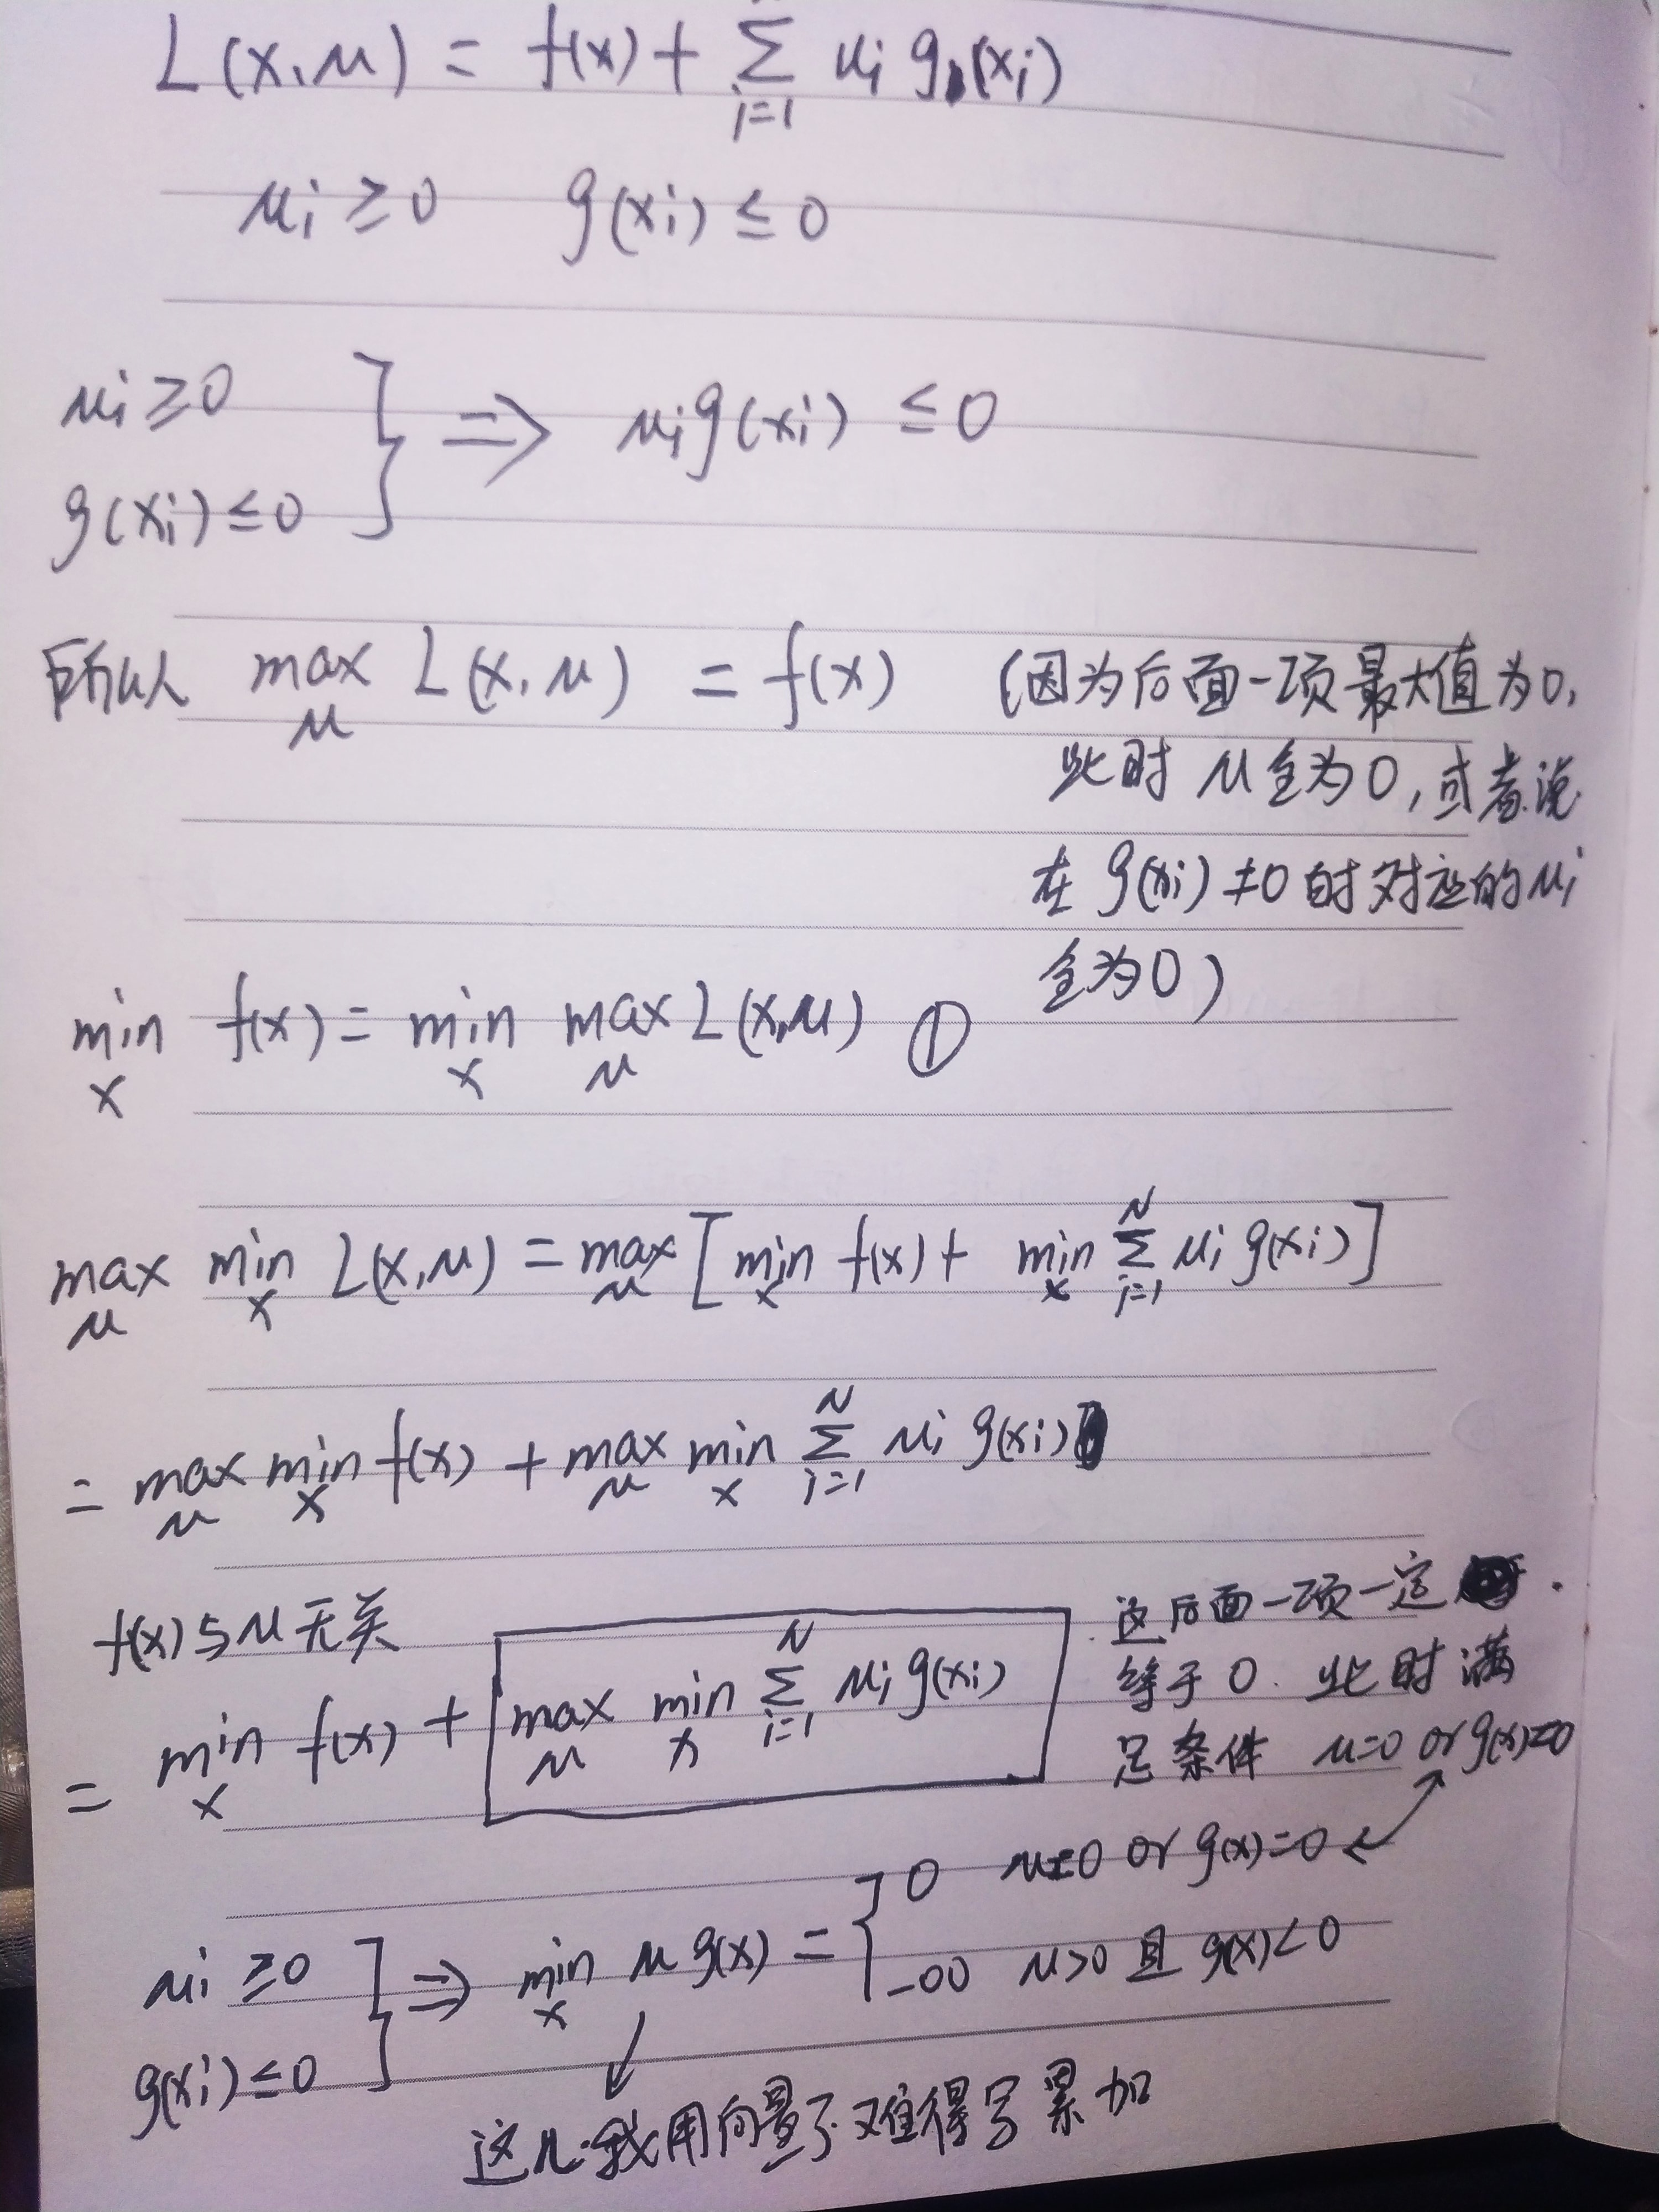 L(x,μ) = f(x) + ∑_{i=1} μi g(xi)
μi ≥ 0 g(xi) ≤ 0
μi ≥ 0
g(xi) ≤ 0 } ⇒ μi g(xi) ≤ 0
所以 max_μ L(x,μ) = f(x) (因为后面一项最大值为0,
此时 μ全为0, 或者说
在 g(xi) ≠ 0 时对应的 μi
全为0)
min_x f(x) = min_x max_μ L(x,μ) ①
max_μ min_x L(x,μ) = max_μ [ min_x f(x) + min_x ∑_{i=1}^N μi g(xi) ]
= max_μ min_x f(x) + max_μ min_x ∑_{i=1}^N μi g(xi)
f(x)与μ无关
= min_x f(x) + max_μ min_x ∑_{i=1}^N μi g(xi)
这后面一项一定
等于 0. 此时满
足条件 μ=0 or g(x)=0
μi ≥ 0
g(xi) ≤ 0 } ⇒ min_x μ g(x) = { 0 μ=0 or g(x)=0
-∞ μ>0 且 g(x)<0
这儿我用向量了.难得写累加